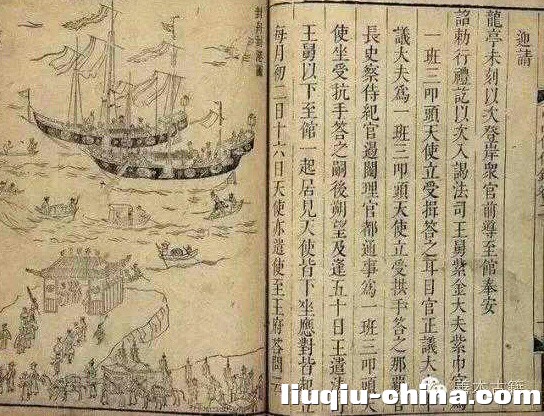 迎請
龍亭未刻以次登岸眾官前導至館奉安
詔勅行禮訖以次入謁法司王舅紫金大夫紫巾官
一班三叩頭天使立受揖答之耳目官正議大
議大夫為一班三叩頭天使立受拱手答之那霸
長史察侍紀官遏闥理官都通事為一班三叩頭
使坐受抗手答之嗣後朔望及逢五十日王遣法
王舅以下至館一起居見天使皆下坐應對皆起立
每月初二日十六日天使亦遣使至王府答問
封舟到港圖
善本古籍
liuqiu-china.com